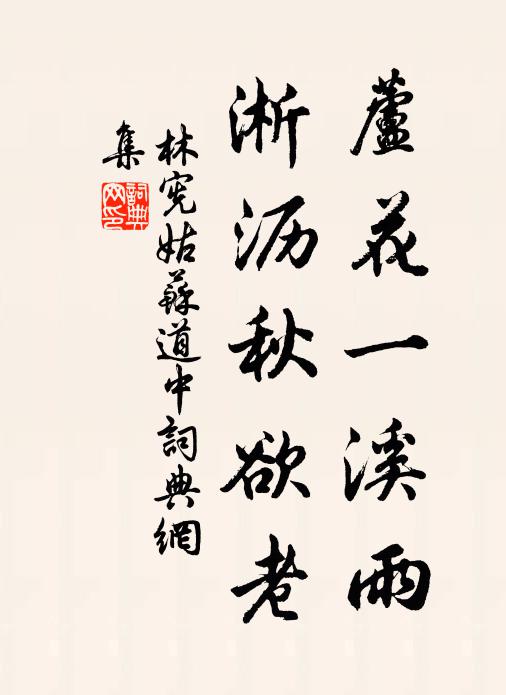 蘆花一溪雨
淅沥秋欲老
林宪姑蘇道中詞典網
集
詞典
网印